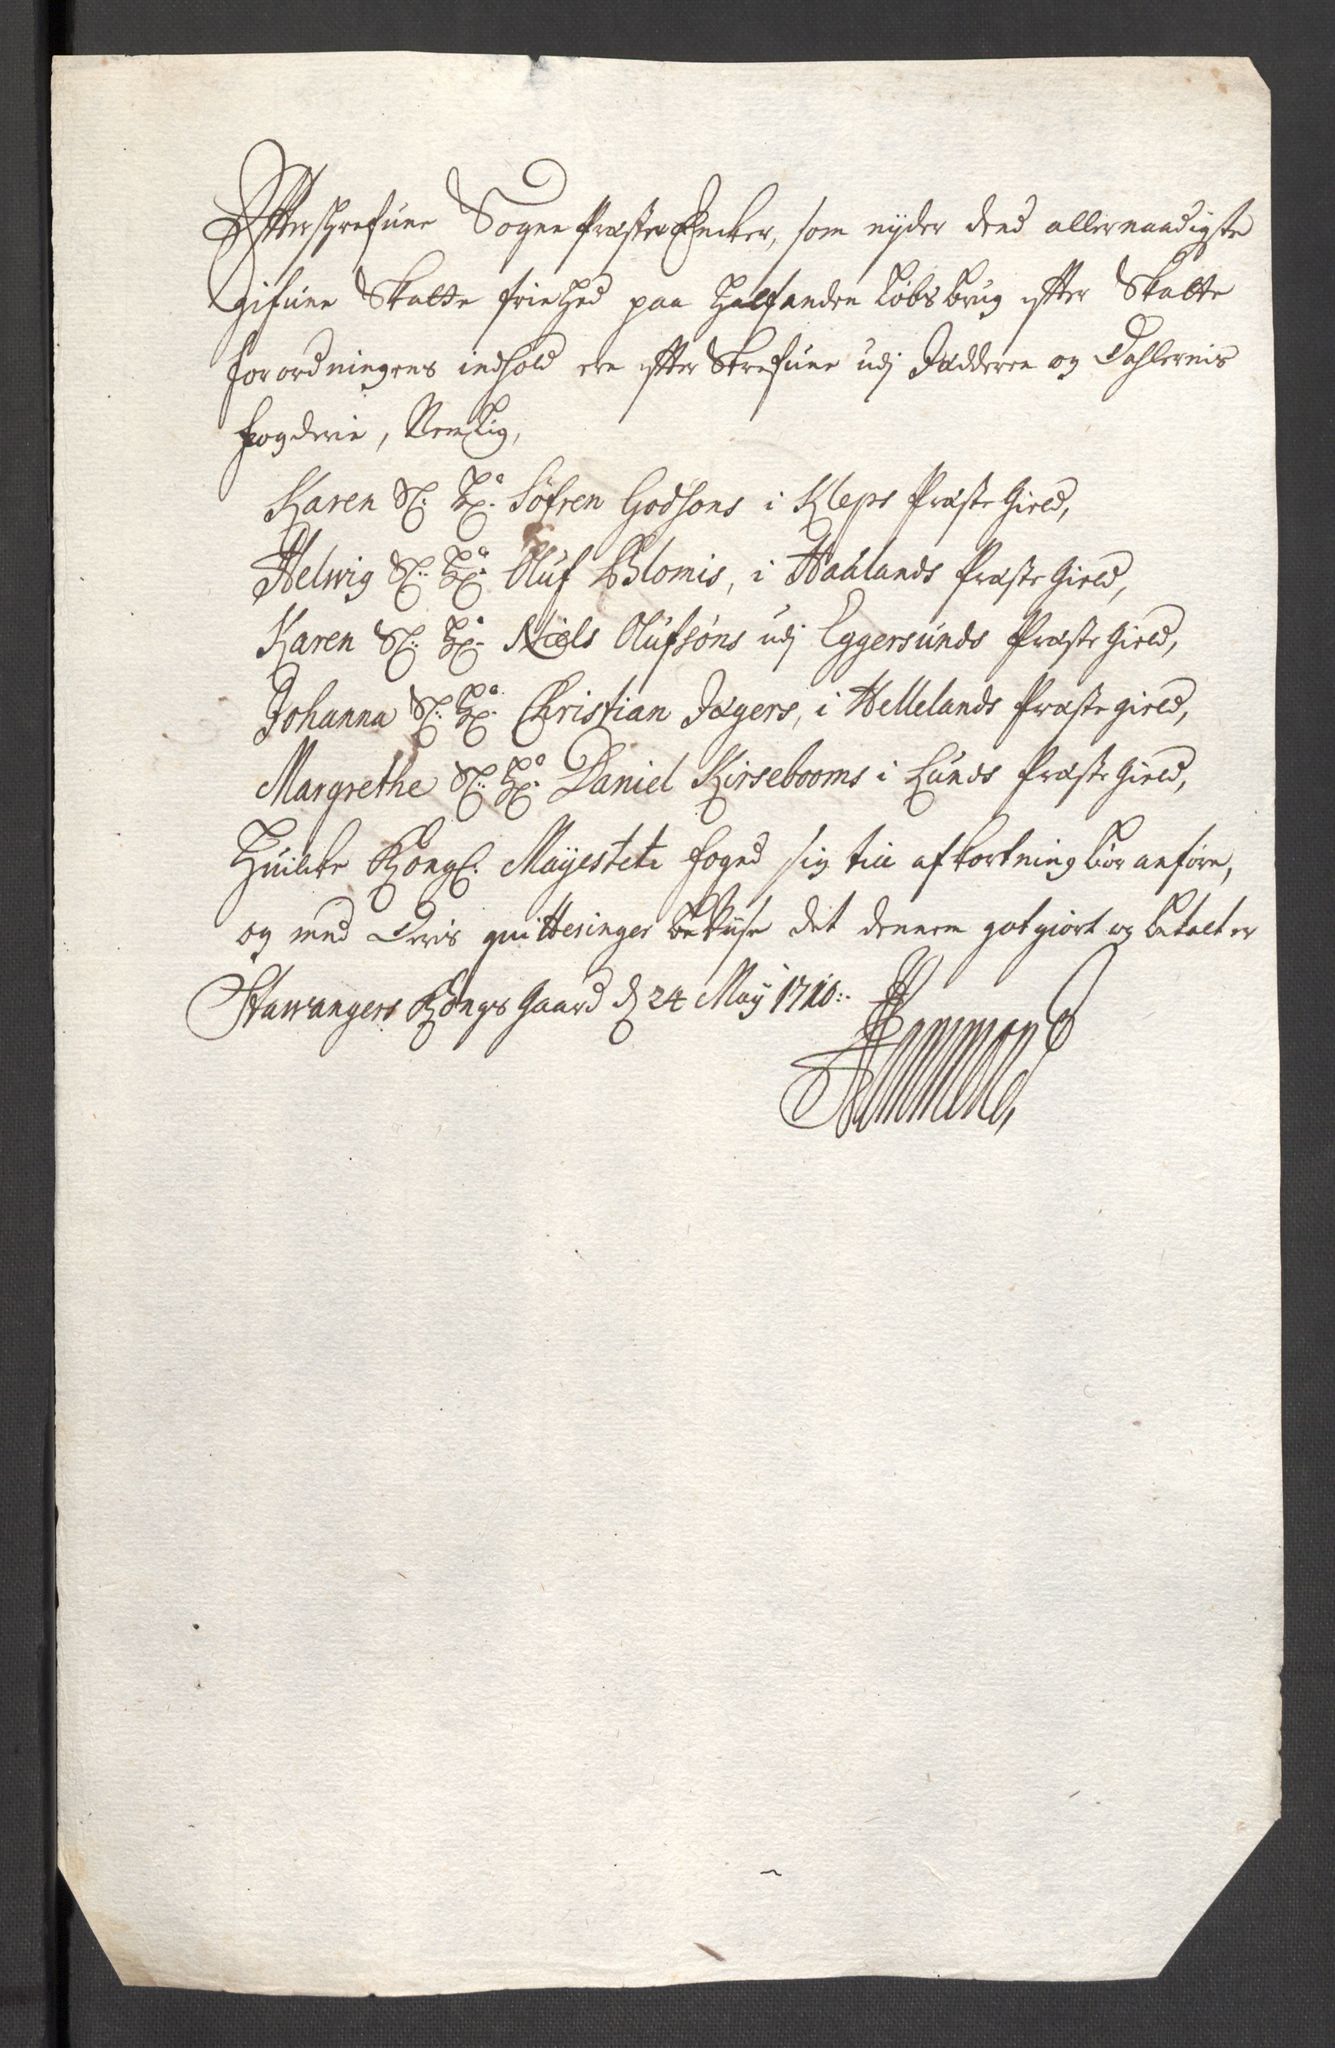 Efterschrefune Sogne Præste Encker, som nyder dend allernaadigste
gifune Skatte friehed paa halfanden Løbs brug efter Skatte
forordningens indhold ere efter Skrefune udj Jædderen og Dahlernis
fogderie, Nemlig,
Karen Sl: Hr: Søfren Godsons i Kleps Præste Gield,
Helwig Sl: Hr: Oluf Blomis, i Haalands Præste Gield,
Karen Sl: Hr: Niels Olufsøns udj Eggersunds Præste Gield,
Johanna Sl: Hr: Christian Jægers, i Hellelands Præste gield,
Margrethe Sl: Hr: Daniel Kirsebooms i Lunds Præste Gield,
Huilcke Kongl. Mayestets foged sig till afkortning bør anføre,
og med Deris quitteringer bevise det dennem got giort og betalt er
Stawangers Kongs Gaard d 24 May 1710:.
Hammond